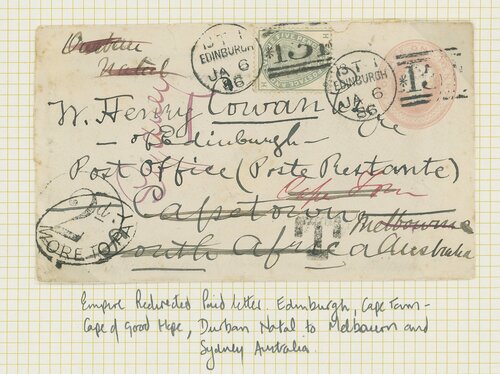 Durban
Natal
IST 1
EDINBURGH
JA 6
86
131
IST 1
EDINBURGH
JA 6
86
13
W. Henry Cowan Esqre
of Edinburgh
Post Office (Poste Restante)
Cape Town
Capetown
Melbourne
South Africa
Australia
2d.
MORE TO PAY
T
Empire Redirected Paid letter. Edinburgh, Cape Town -
Cape of Good Hope, Durban Natal to Melbourn and
Sydney Australia.